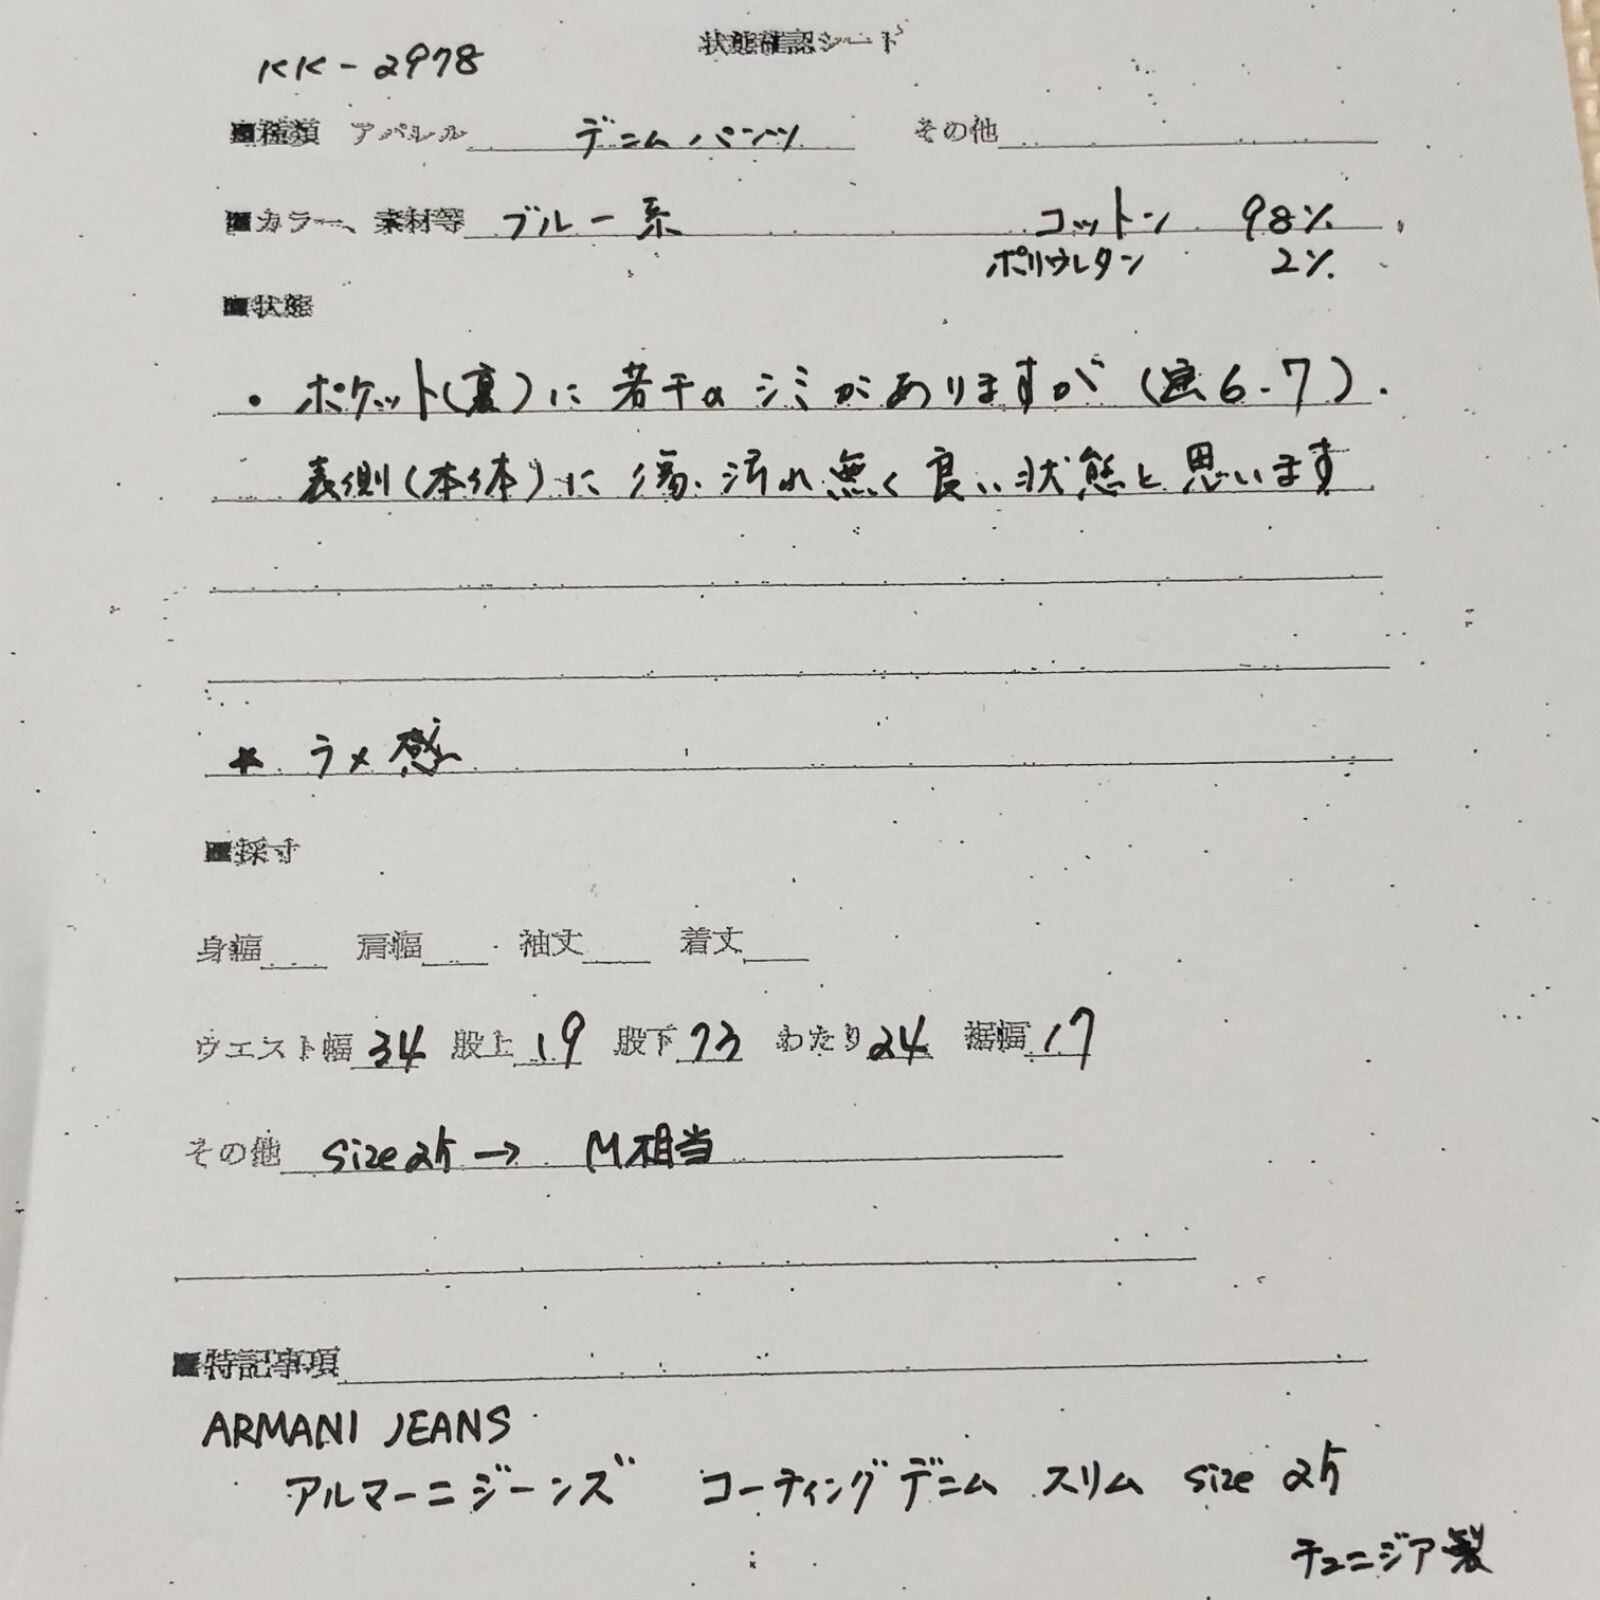 状態確認シート
KK-2978
■種類 アパレル デニムパンツ その他
■カラー、素材等 ブルー系 コットン 98%
ポリウレタン 2%
■状態
・ポケット(裏)に若干のシミがありますが(画6-7).
表側(本体)に傷.汚れ無く良い状態と思います
★ ラメ感
■採寸
身幅 肩幅 袖丈 着丈
ウエスト幅 34 股上 19 股下 73 わたり 24 裾幅 17
その他 size25→ M相当
■特記事項
ARMANI JEANS
アルマーニジーンズ コーティングデニム スリム size 25
チュニジア製